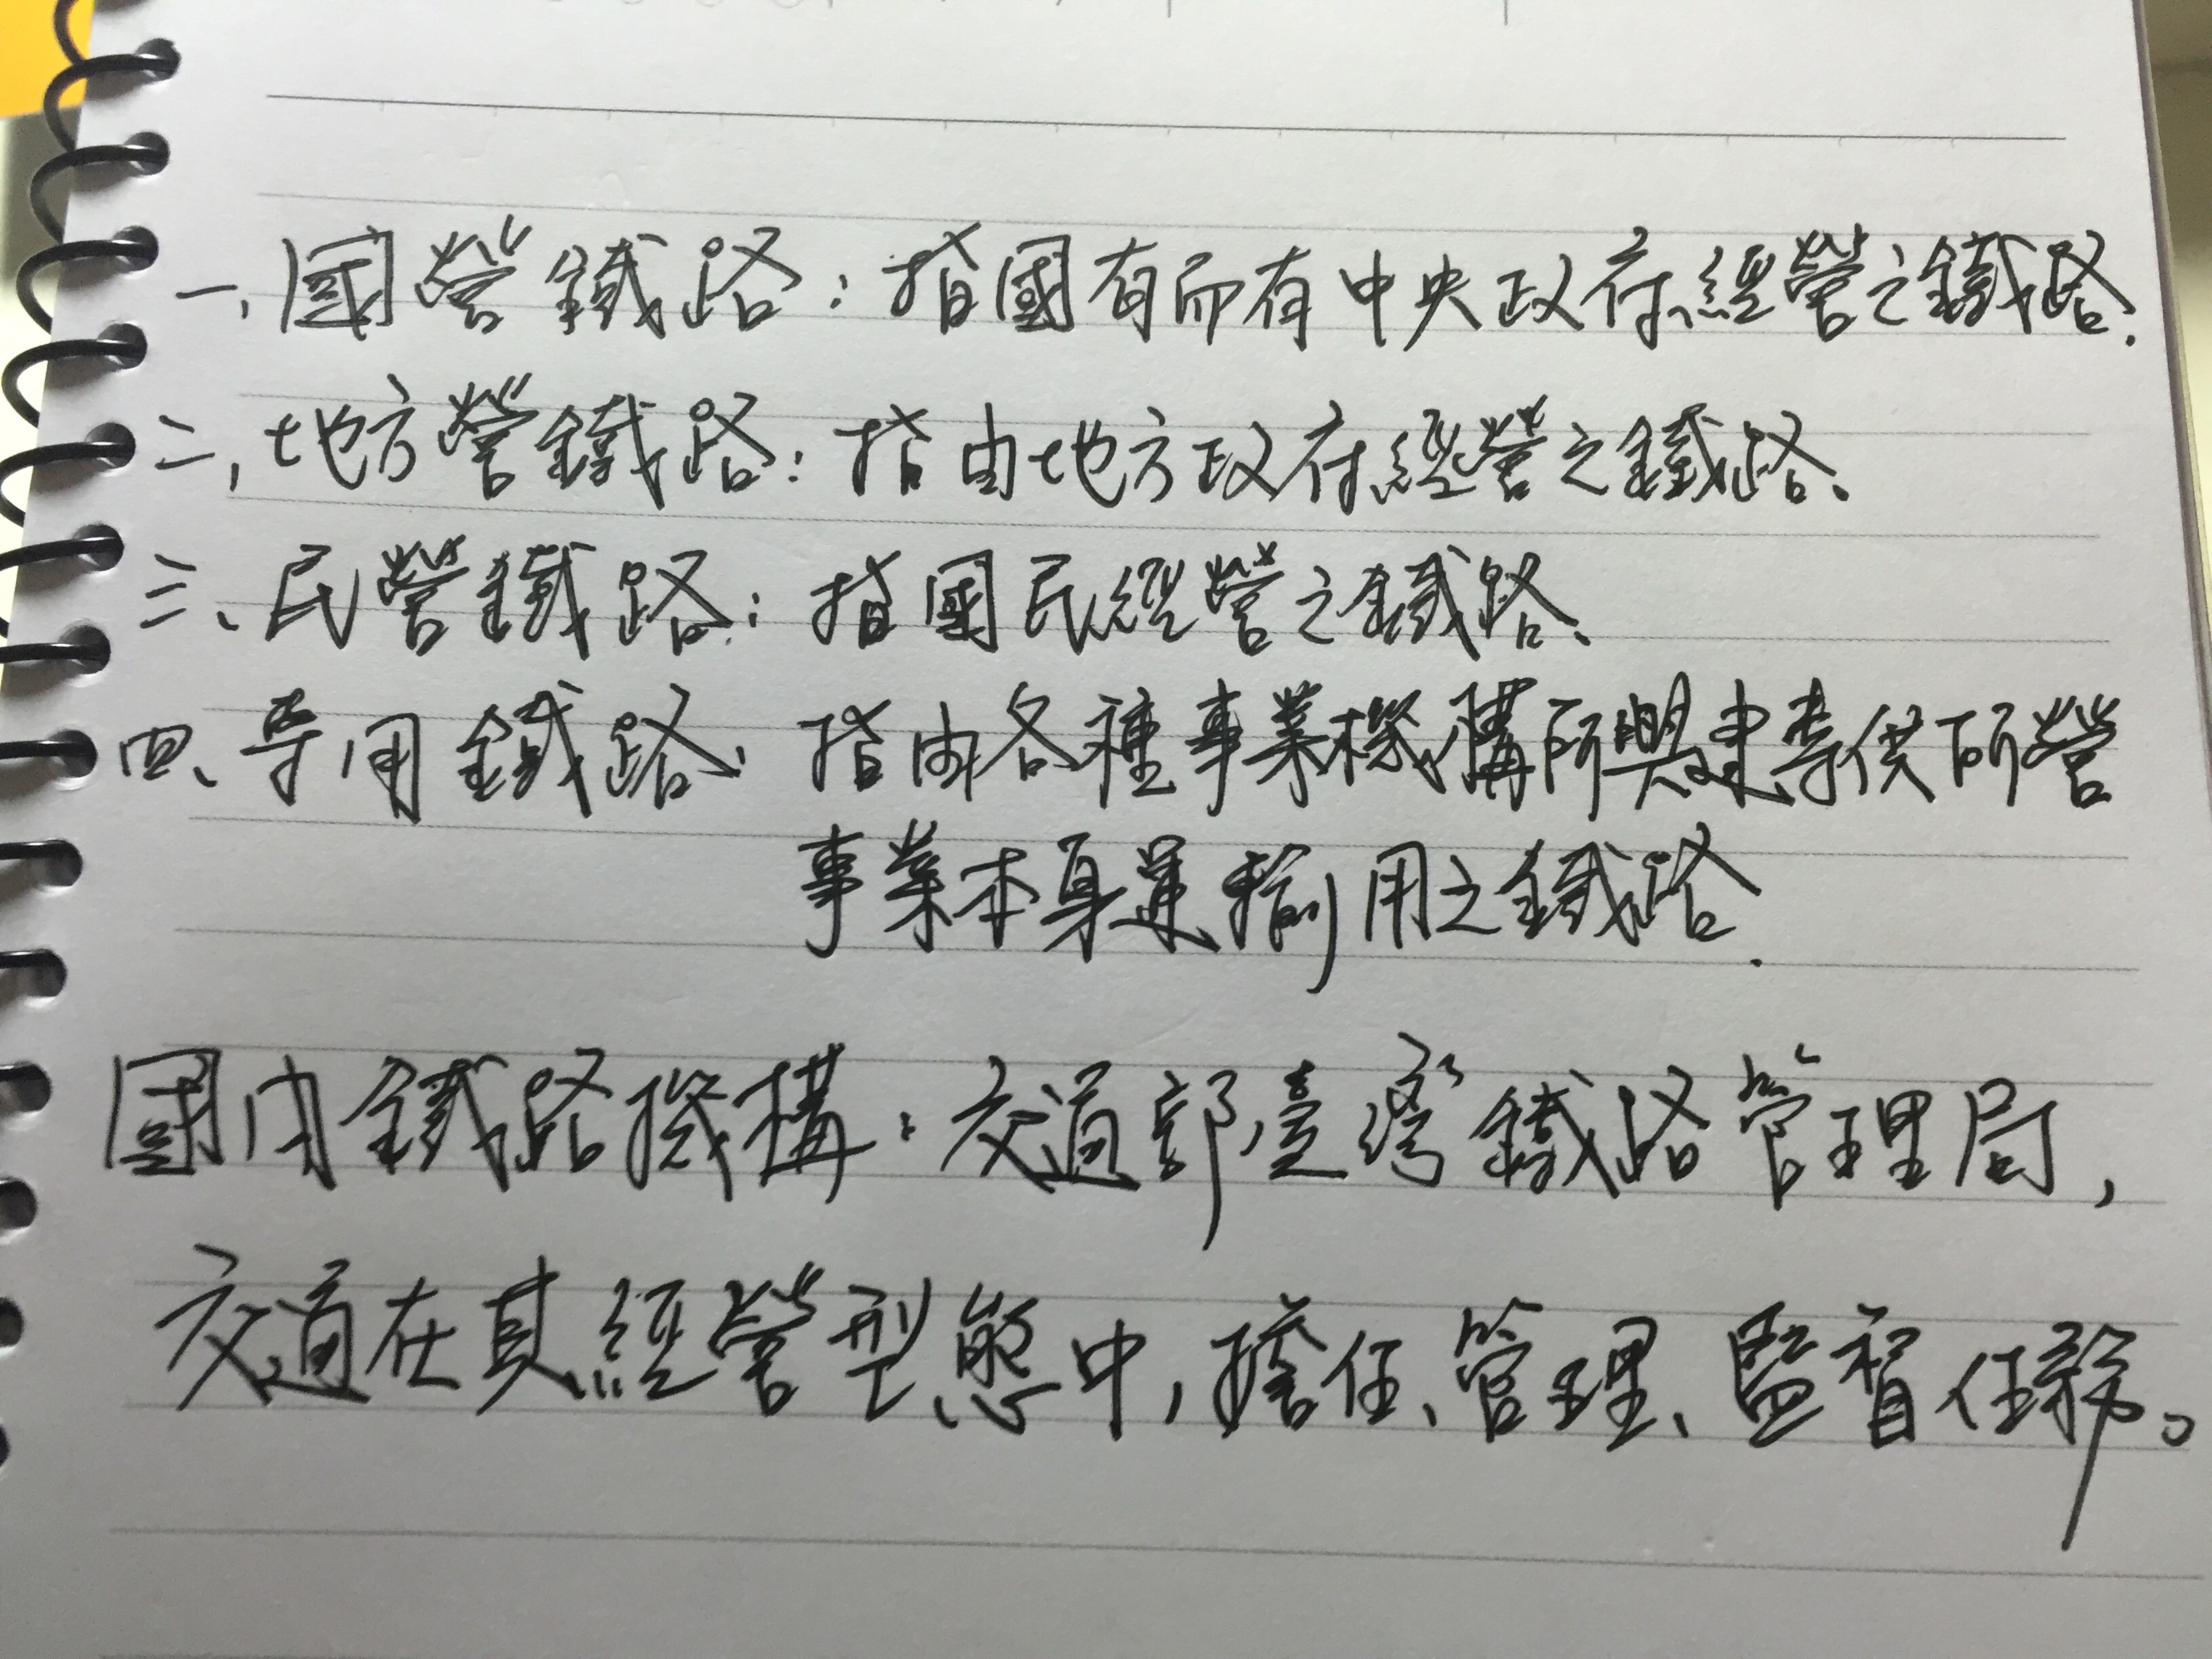 一、國營鐵路：指國有而有中央政府經營之鐵路.
二、地方營鐵路：指由地方政府經營之鐵路、
三、民營鐵路：指國民經營之鐵路、
四、專用鐵路、指由各種事業機構所興建專供所營
事業本身運輸用之鐵路.
國內鐵路機構：交通部臺灣鐵路管理局，
交通在其經營型態中，擔任、管理、監督任務。